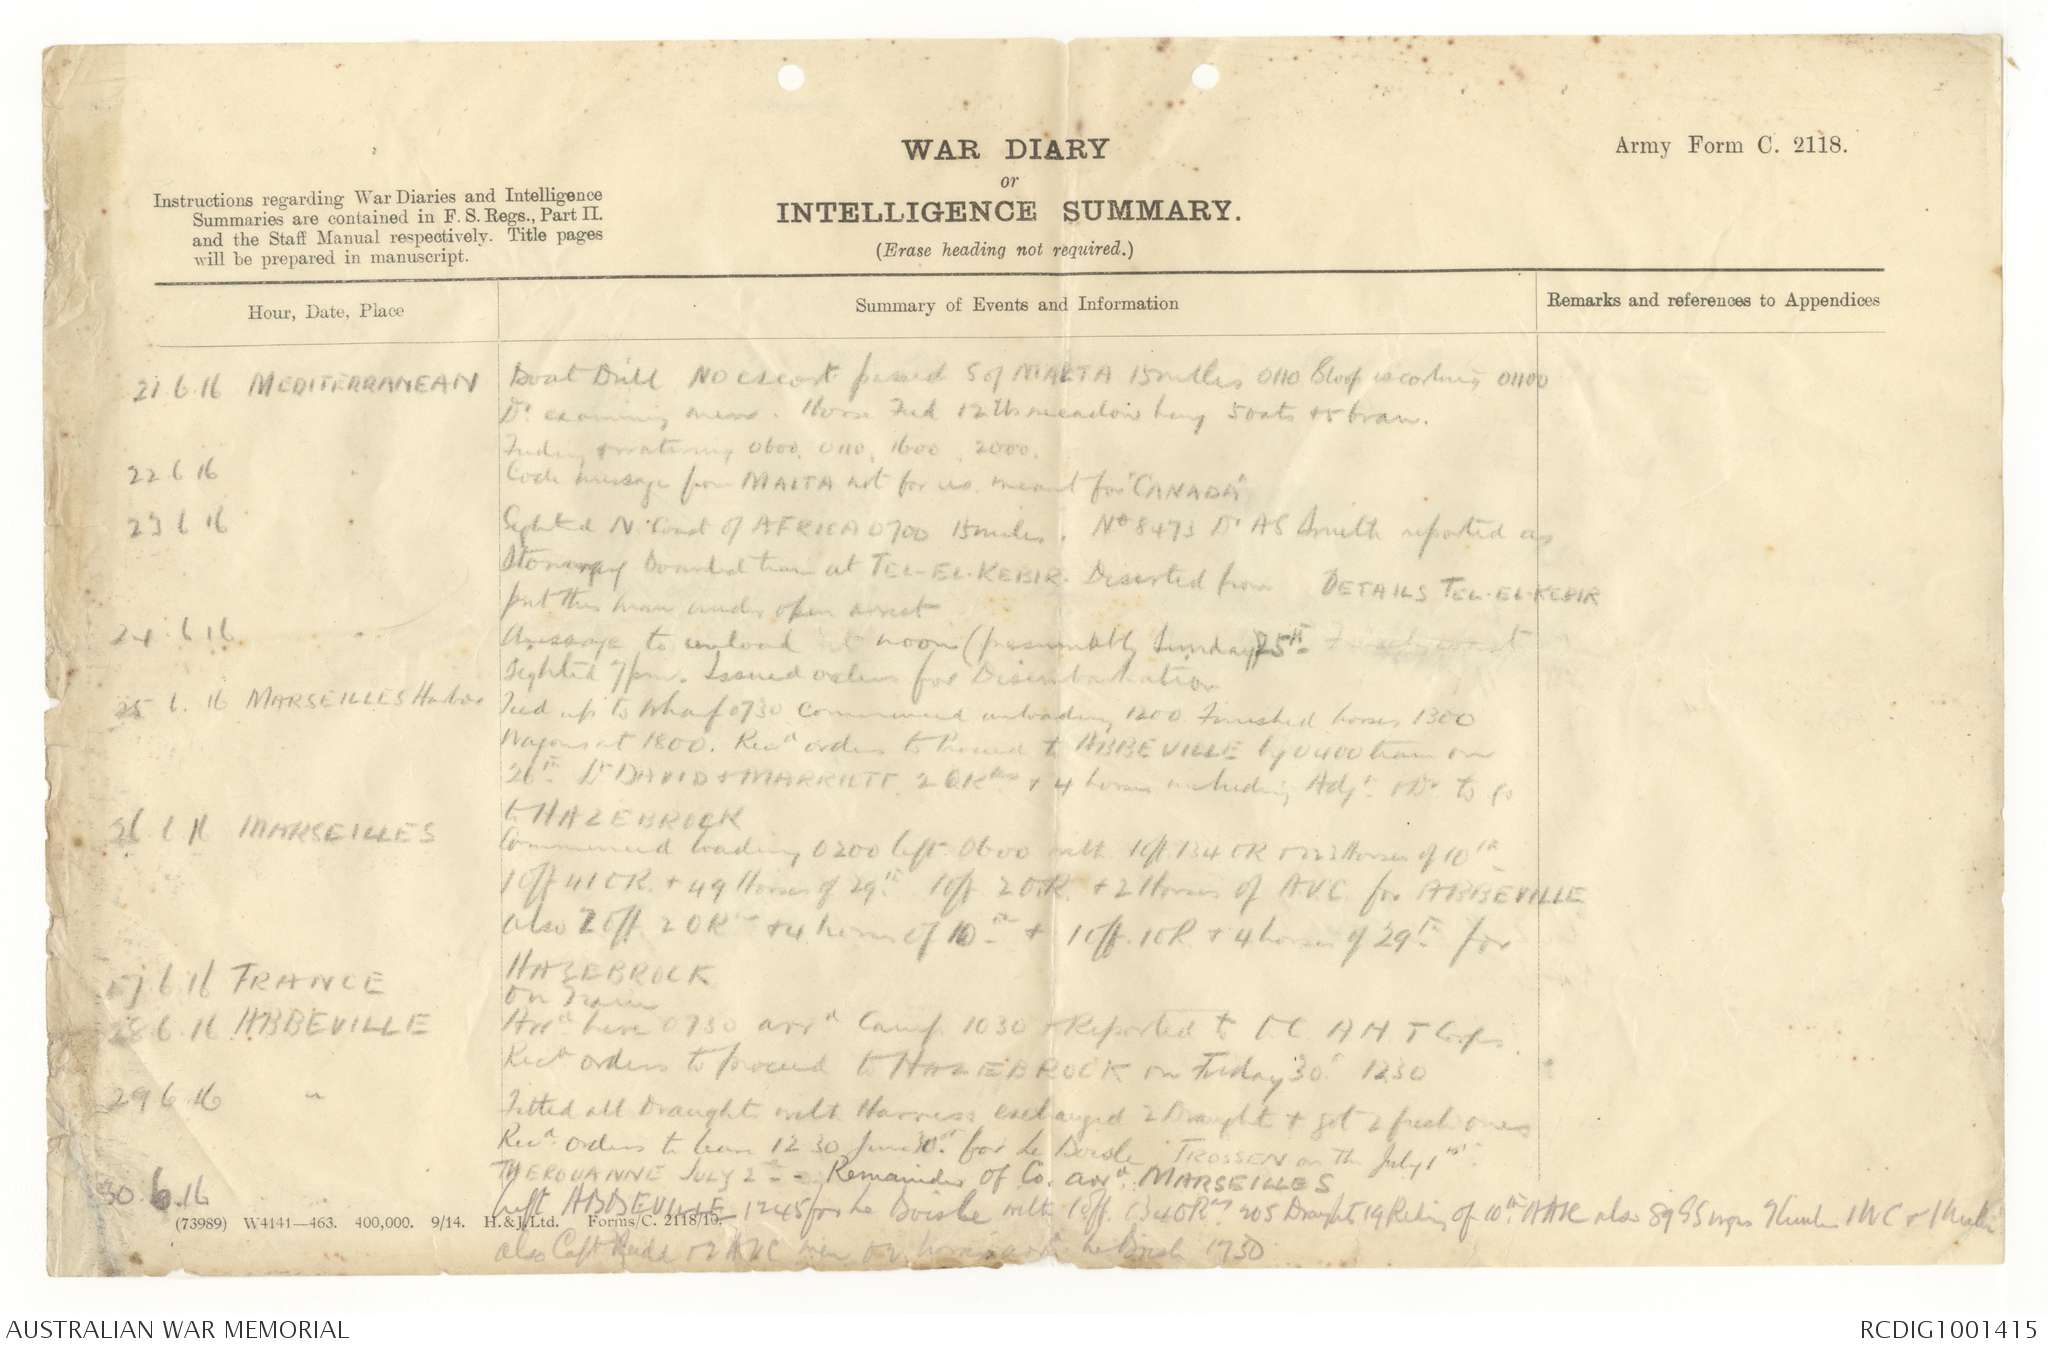 WAR DIARY
or
INTELLIGENCE SUMMARY.
(Erase heading not required.)
Army Form C. 2118.
Instructions regarding War Diaries and Intelligence
Summaries are contained in F. S. Regs., Part II.
and the Staff Manual respectively. Title pages
will be prepared in manuscript.
Hour, Date, Place
Summary of Events and Information
Remarks and references to Appendices
21 6 16 MEDITERRANEAN Boat Drill No escort passed S of MALTA 15 miles 0110 Sloop escorting 01100
Dr examining men. Horse Feed 12 lbs meadow hay 5 oats + 5 bran.
Feeding + watering 0600, 0110, 1600, 2000.
22 6 16 " Code message from MALTA not for us meant for "CANADA"
23 6 16 " Sighted N Coast of AFRICA 0700 15 miles. No 8473 Dr AS Smith reported as
Stowaway Boarded train at TEL-EL-KEBIR. Deserted from DETAILS TEL-EL-KEBIR
put this man under open arrest
24 6 16 " Message to unload at noon (presumably Sunday) 25th French coast
sighted 7pm. Issued orders for Disembarkation
25 6 16 MARSEILLES Harbour Tied up to Wharf 0730 commenced unloading 1200 Finished horses 1300
Wagons at 1800. Recd orders to Proceed to ABBEVILLE by 0400 train on
26th Lt DAVID + MARRIOTT 2 ORks + 4 horses including Adjt + Dr to go
to HAZEBROCK
26 6 16 MARSEILLES Commenced loading 0200 left 0600 with 1 off 134 OR + 223 Horses of 10th
1 off 41 OR. + 49 Horses of 29th 1 off 2 OR. + 2 Horses of AVC for ABBEVILLE
also 2 off 2 OR + 4 horses of 10th + 1 off. 1 OR + 4 horses of 29th for
HAZEBROCK
27 6 16 FRANCE on Train
28 6 16 ABBEVILLE Arrd here 0730 arrd Camp 1030 + Reported to O.C. A H T Corps.
Recd orders to proceed to HAZEBROCK on Friday 30th 1230
29 6 16 " Fitted all Draught with Harness exchanged 2 Draught + got 2 fresh ones
Recd orders to leave 12 30 June 30th for Le Boisle TROSSEN on the July 1st
THEROUANNE JULY 2nd Remainder of Co. arrd MARSEILLES
30 6 16 Left ABBEVILLE 1245 for Le Boisle with 1 off. 134 OR 205 Draught 19 Riding of 10th AASC also 89 GS wgns
also Capt + 2 AVC men + 2 horses arrd Le Boisle 1730
(73989) W4141—463. 400,000. 9/14. H. & J. Ltd. Forms/C. 2118/10.
AUSTRALIAN WAR MEMORIAL
RCDIG1001415